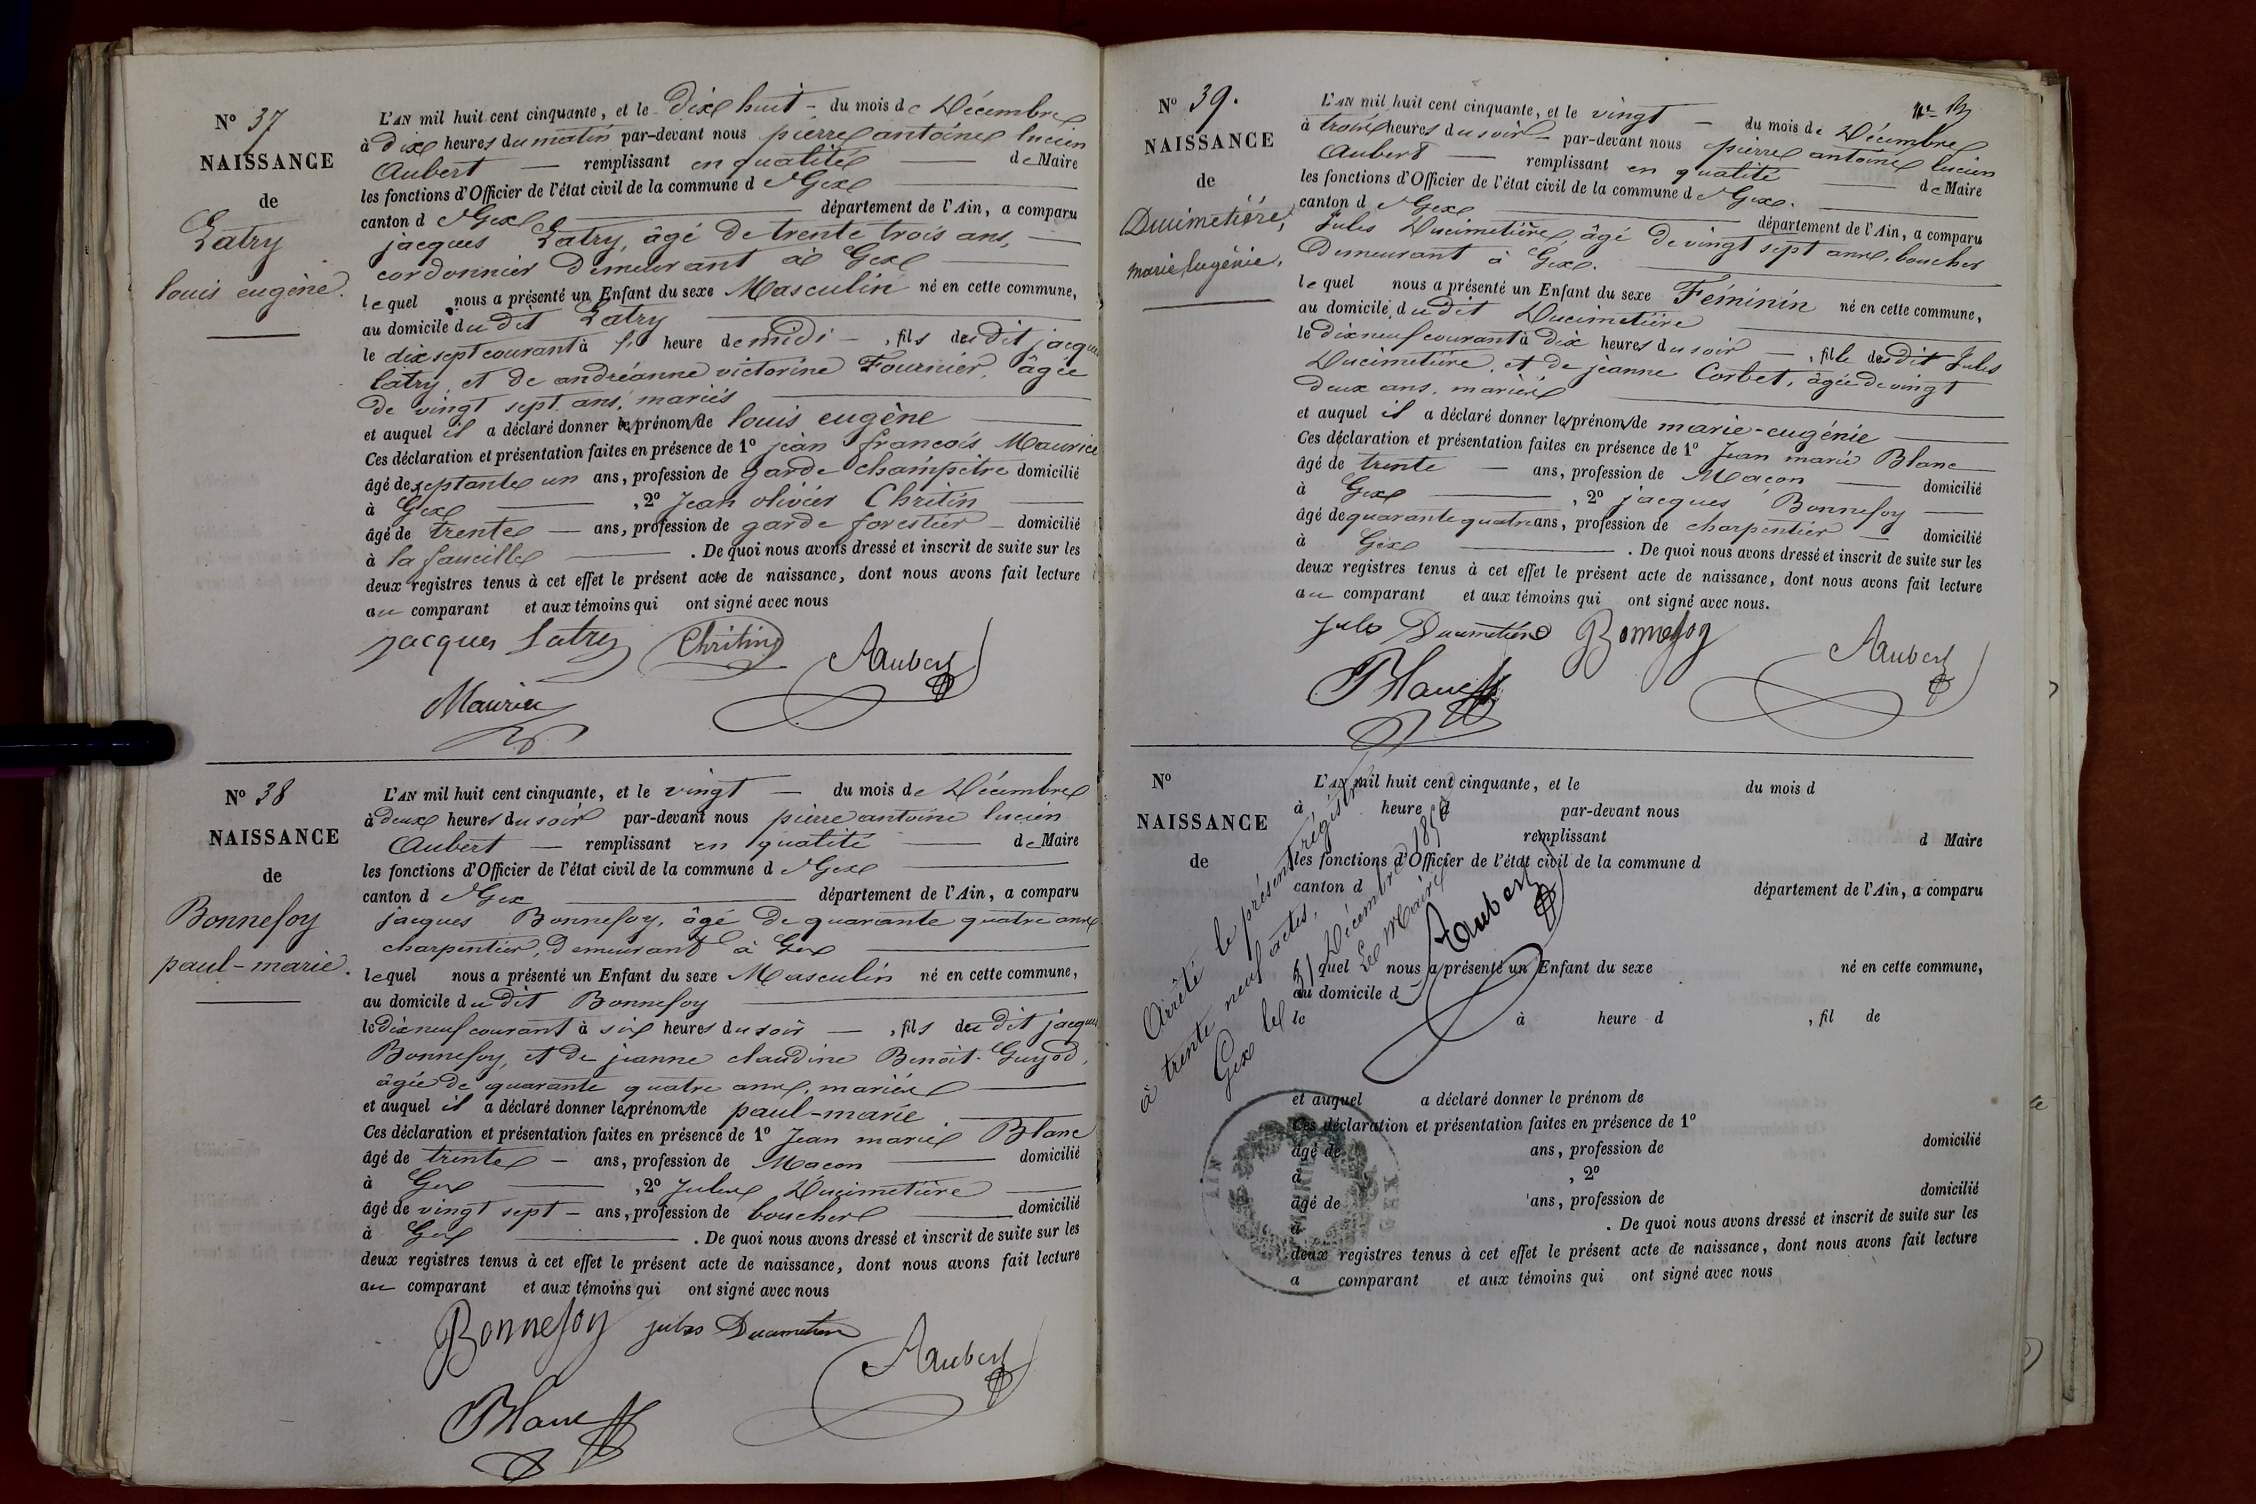 N° 37
NAISSANCE
de
Latry
louis eugène.
L'AN mil huit cent cinquante, et le dix huit du mois de Décembre
à dix heures du matin par-devant nous pierre antoine lucien
Aubert remplissant en qualité de Maire
les fonctions d'Officier de l'état civil de la commune de Gex
canton de Gex département de l'Ain, a comparu
jacques Latry, âgé de trente trois ans,
cordonnier demeurant à Gex
lequel nous a présenté un Enfant du sexe Masculin né en cette commune,
au domicile du dit Latry
le dix sept courant à heure de midi, fils du dit jacques
latry, et de andréanne victorine Fournier, âgée
de vingt sept ans, mariés
et auquel il a déclaré donner les prénoms de louis eugène
Ces déclaration et présentation faites en présence de 1° jean francois Maurice
âgé de septante un ans, profession de garde champètre domicilié
à Gex, 2° Jean olivier Chritin
âgé de trente ans, profession de garde forestier domicilié
à la faucille. De quoi nous avons dressé et inscrit de suite sur les
deux registres tenus à cet effet le présent acte de naissance, dont nous avons fait lecture
au comparant et aux témoins qui ont signé avec nous
jacques Latry Chritin Aubert
Maurice
N° 38
NAISSANCE
de
Bonnefoy
paul-marie.
L'AN mil huit cent cinquante, et le vingt du mois de Décembre
à deux heures du soir par-devant nous pierre antoine lucien
Aubert remplissant en qualité de Maire
les fonctions d'Officier de l'état civil de la commune de Gex
canton de Gex département de l'Ain, a comparu
jacques Bonnefoy, âgé de quarante quatre ans
charpentier, demeurant à Gex
lequel nous a présenté un Enfant du sexe Masculin né en cette commune,
au domicile du dit Bonnefoy
le dix neuf courant à six heures du soir, fils du dit jacques
Bonnefoy, et de jeanne claudine Benoit-Guyod,
âgée de quarante quatre ans, mariés
et auquel il a déclaré donner les prénoms de paul-marie
Ces déclaration et présentation faites en présence de 1° Jean marie Blanc
âgé de trente ans, profession de Macon domicilié
à Gex, 2° Jules Ducimetière
âgé de vingt sept ans, profession de boucher domicilié
à Gex. De quoi nous avons dressé et inscrit de suite sur les
deux registres tenus à cet effet le présent acte de naissance, dont nous avons fait lecture
au comparant et aux témoins qui ont signé avec nous
Bonnefoy jules Ducimetière Aubert
Blanc
N° 39.
NAISSANCE
de
Ducimetière,
marie Eugénie.
L'AN mil huit cent cinquante, et le vingt du mois de Décembre
à trois heures du soir par-devant nous pierre antoine lucien
Aubert remplissant en qualité de Maire
les fonctions d'Officier de l'état civil de la commune de Gex.
canton de Gex département de l'Ain, a comparu
Jules Ducimetière âgé de vingt sept ans, boucher
demeurant à Gex.
lequel nous a présenté un Enfant du sexe Féminin né en cette commune,
au domicile du dit Ducimetière
le dix neuf courant à dix heures du soir, fille du dit Jules
Ducimetière, et de jeanne Corbet, âgée de vingt
deux ans, mariés
et auquel il a déclaré donner les prénoms de marie-eugénie
Ces déclaration et présentation faites en présence de 1° Jean marie Blanc
âgé de trente ans, profession de Macon domicilié
à Gex, 2° jacques Bonnefoy
âgé de quarante quatre ans, profession de charpentier domicilié
à Gex. De quoi nous avons dressé et inscrit de suite sur les
deux registres tenus à cet effet le présent acte de naissance, dont nous avons fait lecture
au comparant et aux témoins qui ont signé avec nous.
Jules Ducimetière Bonnefoy Aubert
Blanc
N°
NAISSANCE
de
L'AN mil huit cent cinquante, et le du mois d
à heure d par-devant nous
remplissant d Maire
les fonctions d'Officier de l'état civil de la commune d
canton d département de l'Ain, a comparu
quel nous a présenté un Enfant du sexe né en cette commune,
au domicile d
le à heure d, fil de
et auquel a déclaré donner le prénom de
Ces déclaration et présentation faites en présence de 1°
âgé de ans, profession de domicilié
à, 2°
âgé de ans, profession de domicilié
à. De quoi nous avons dressé et inscrit de suite sur les
deux registres tenus à cet effet le présent acte de naissance, dont nous avons fait lecture
a comparant et aux témoins qui ont signé avec nous
Arrêté le présent régistre
à trente neuf actes,
Gex le 31 Décembre 1850
Le Maire
Aubert
MAIRIE
GEX
AIN